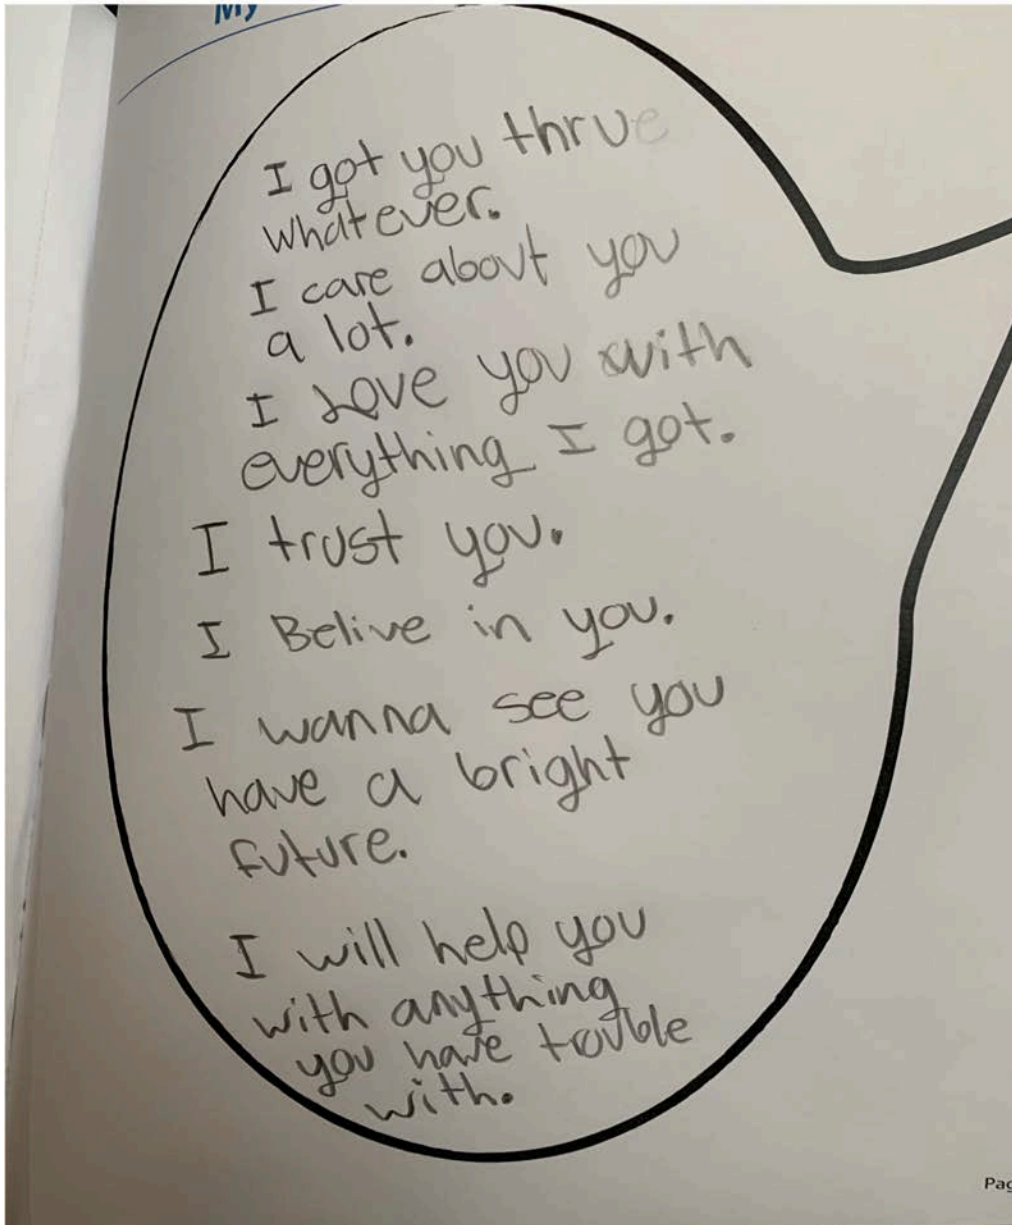 My
I got you thrue
whatever.
I care about you
a lot.
I Love you with
everything I got.
I trust you.
I Belive in you.
I wanna see you
have a bright
future.
I will help you
with anything
you have trouble
with.
Pag